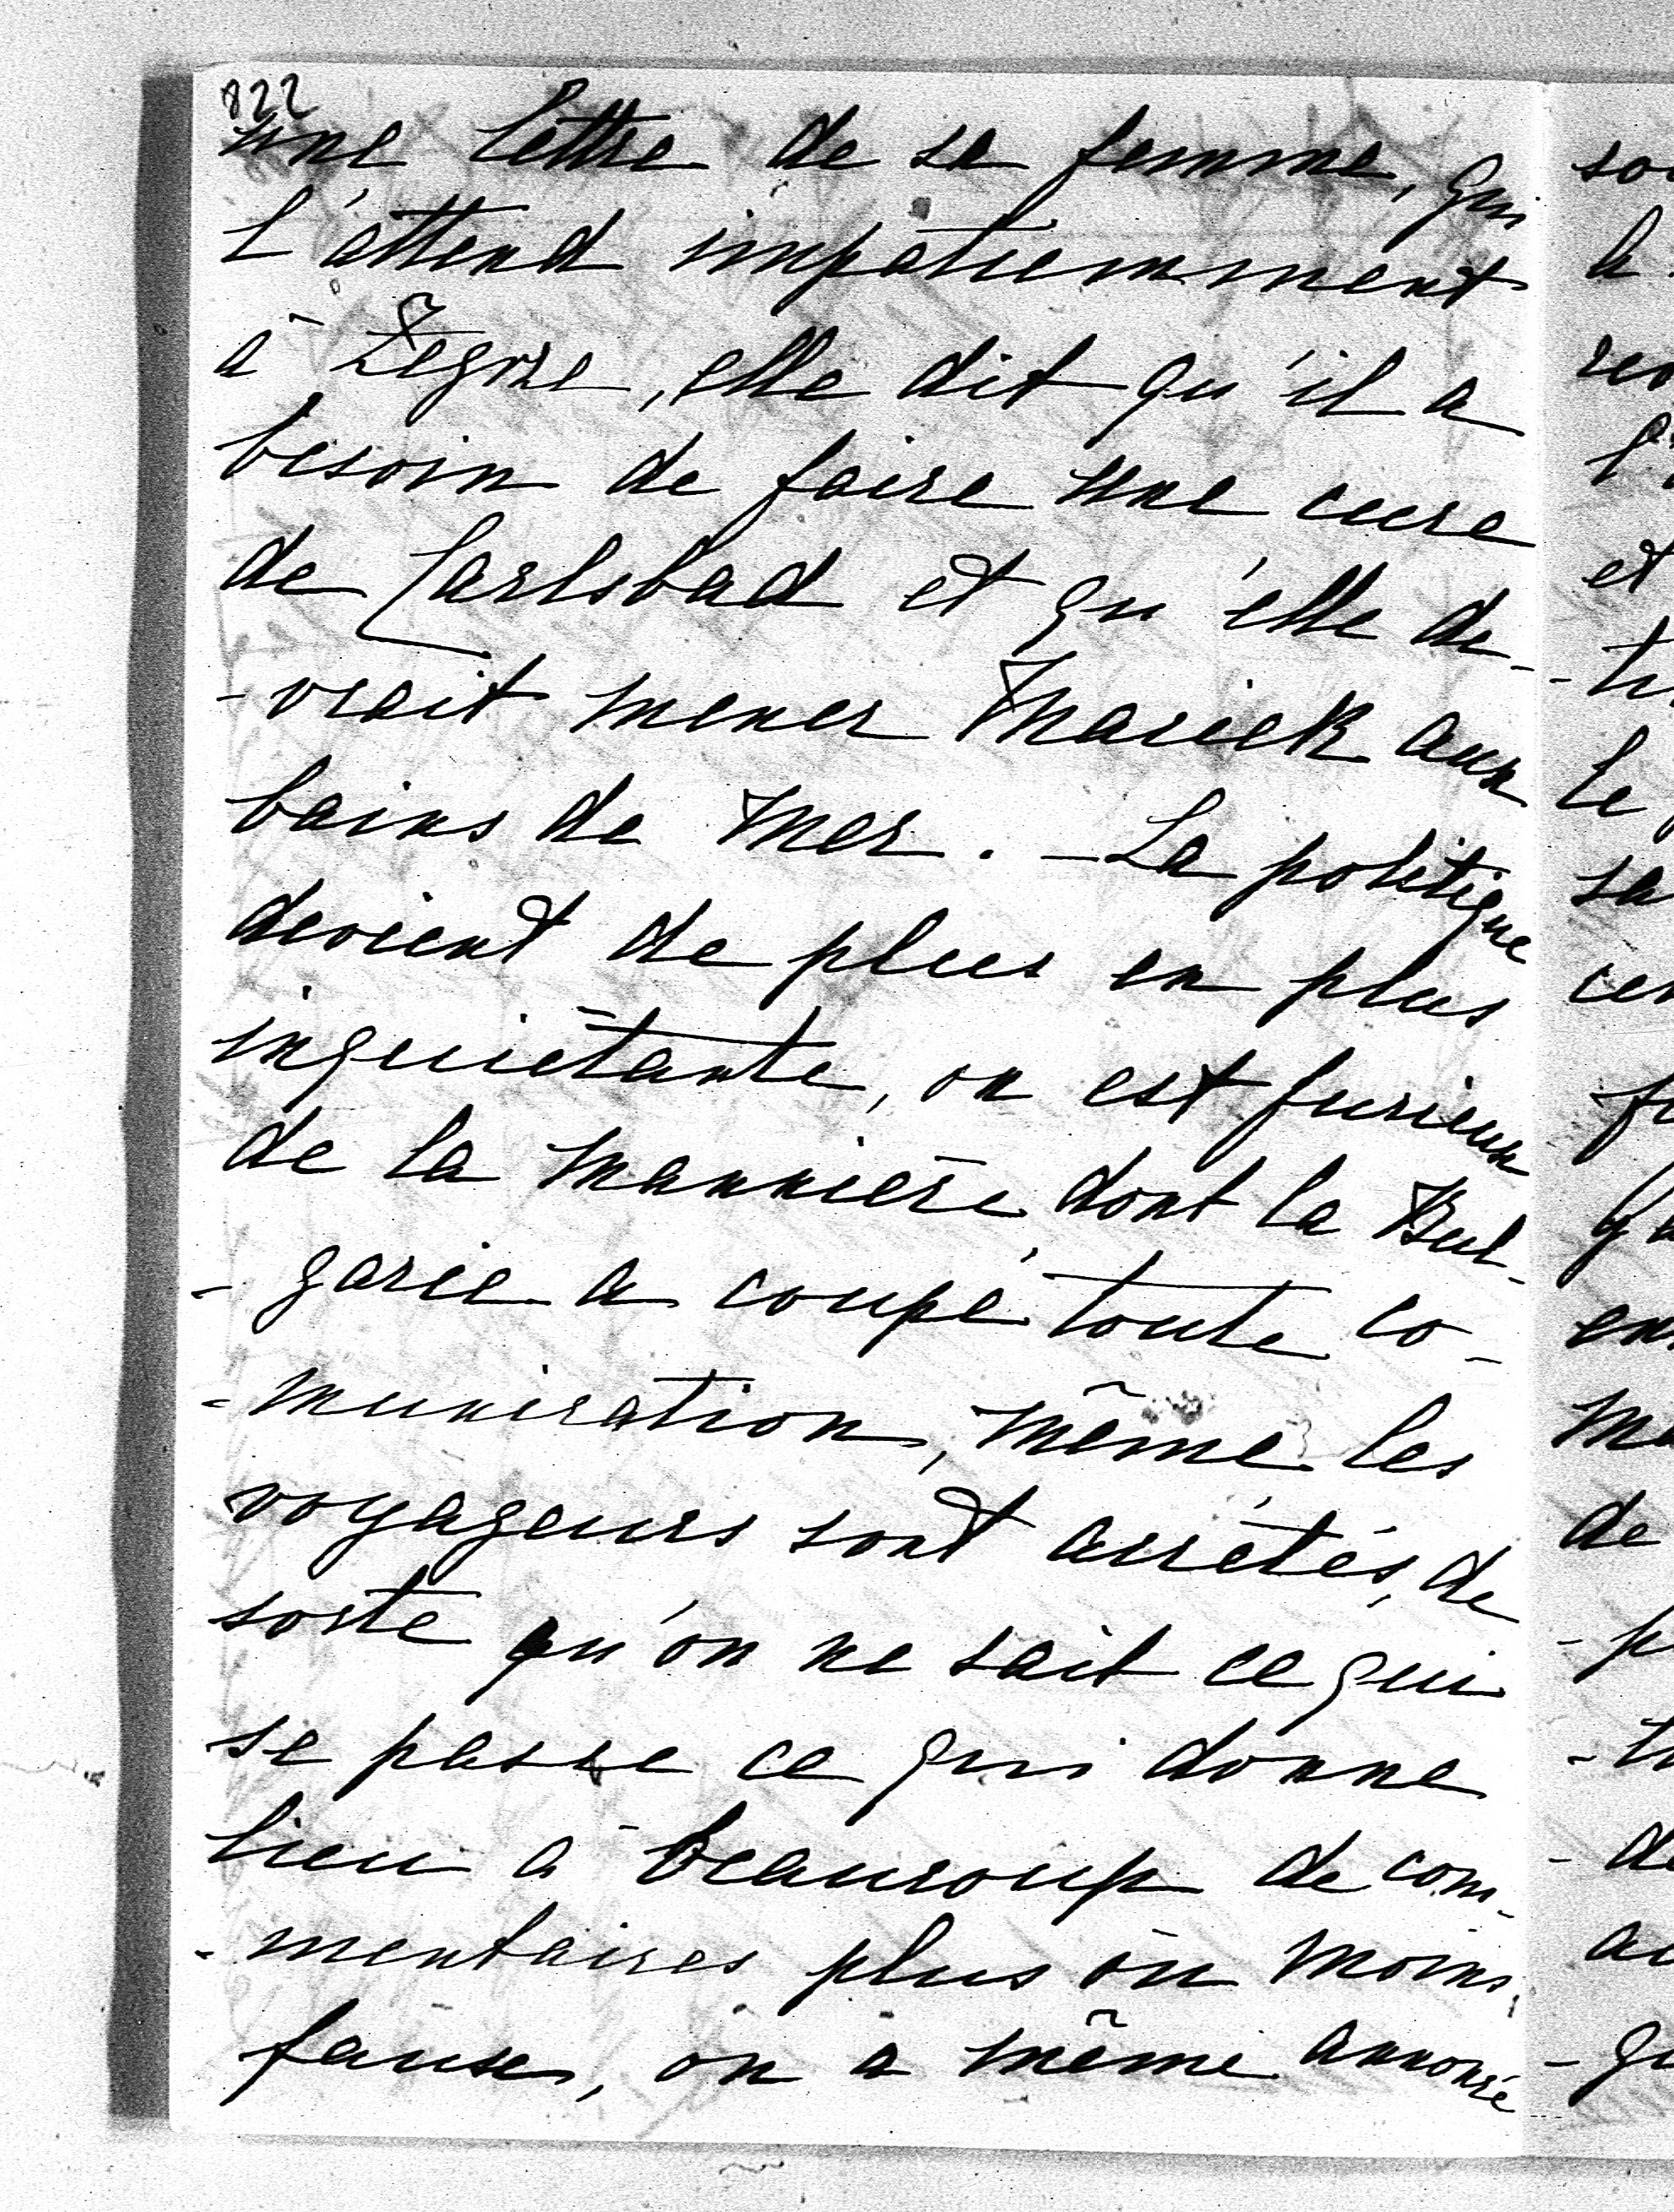 822
une lettre de sa femme, qui
l'attend impatiemment
à Zegrze, elle dit qu'il a
besoin de faire une cure
de Carlsbad et qu'elle de-
-vrait mener Marick aux
bains de mer. - La politique
devient de plus en plus
inquiétante, on est furieux
de la mannière dont la Bul-
-garie a coupé toute co-
-munication, même les
voyageurs sont arrêtés, de
sorte qu'on ne sait ce qui
se passe ce qui donne
lieu à beaucoup de com-
-mentaires plus ou moins
fauses, on a même annoncé